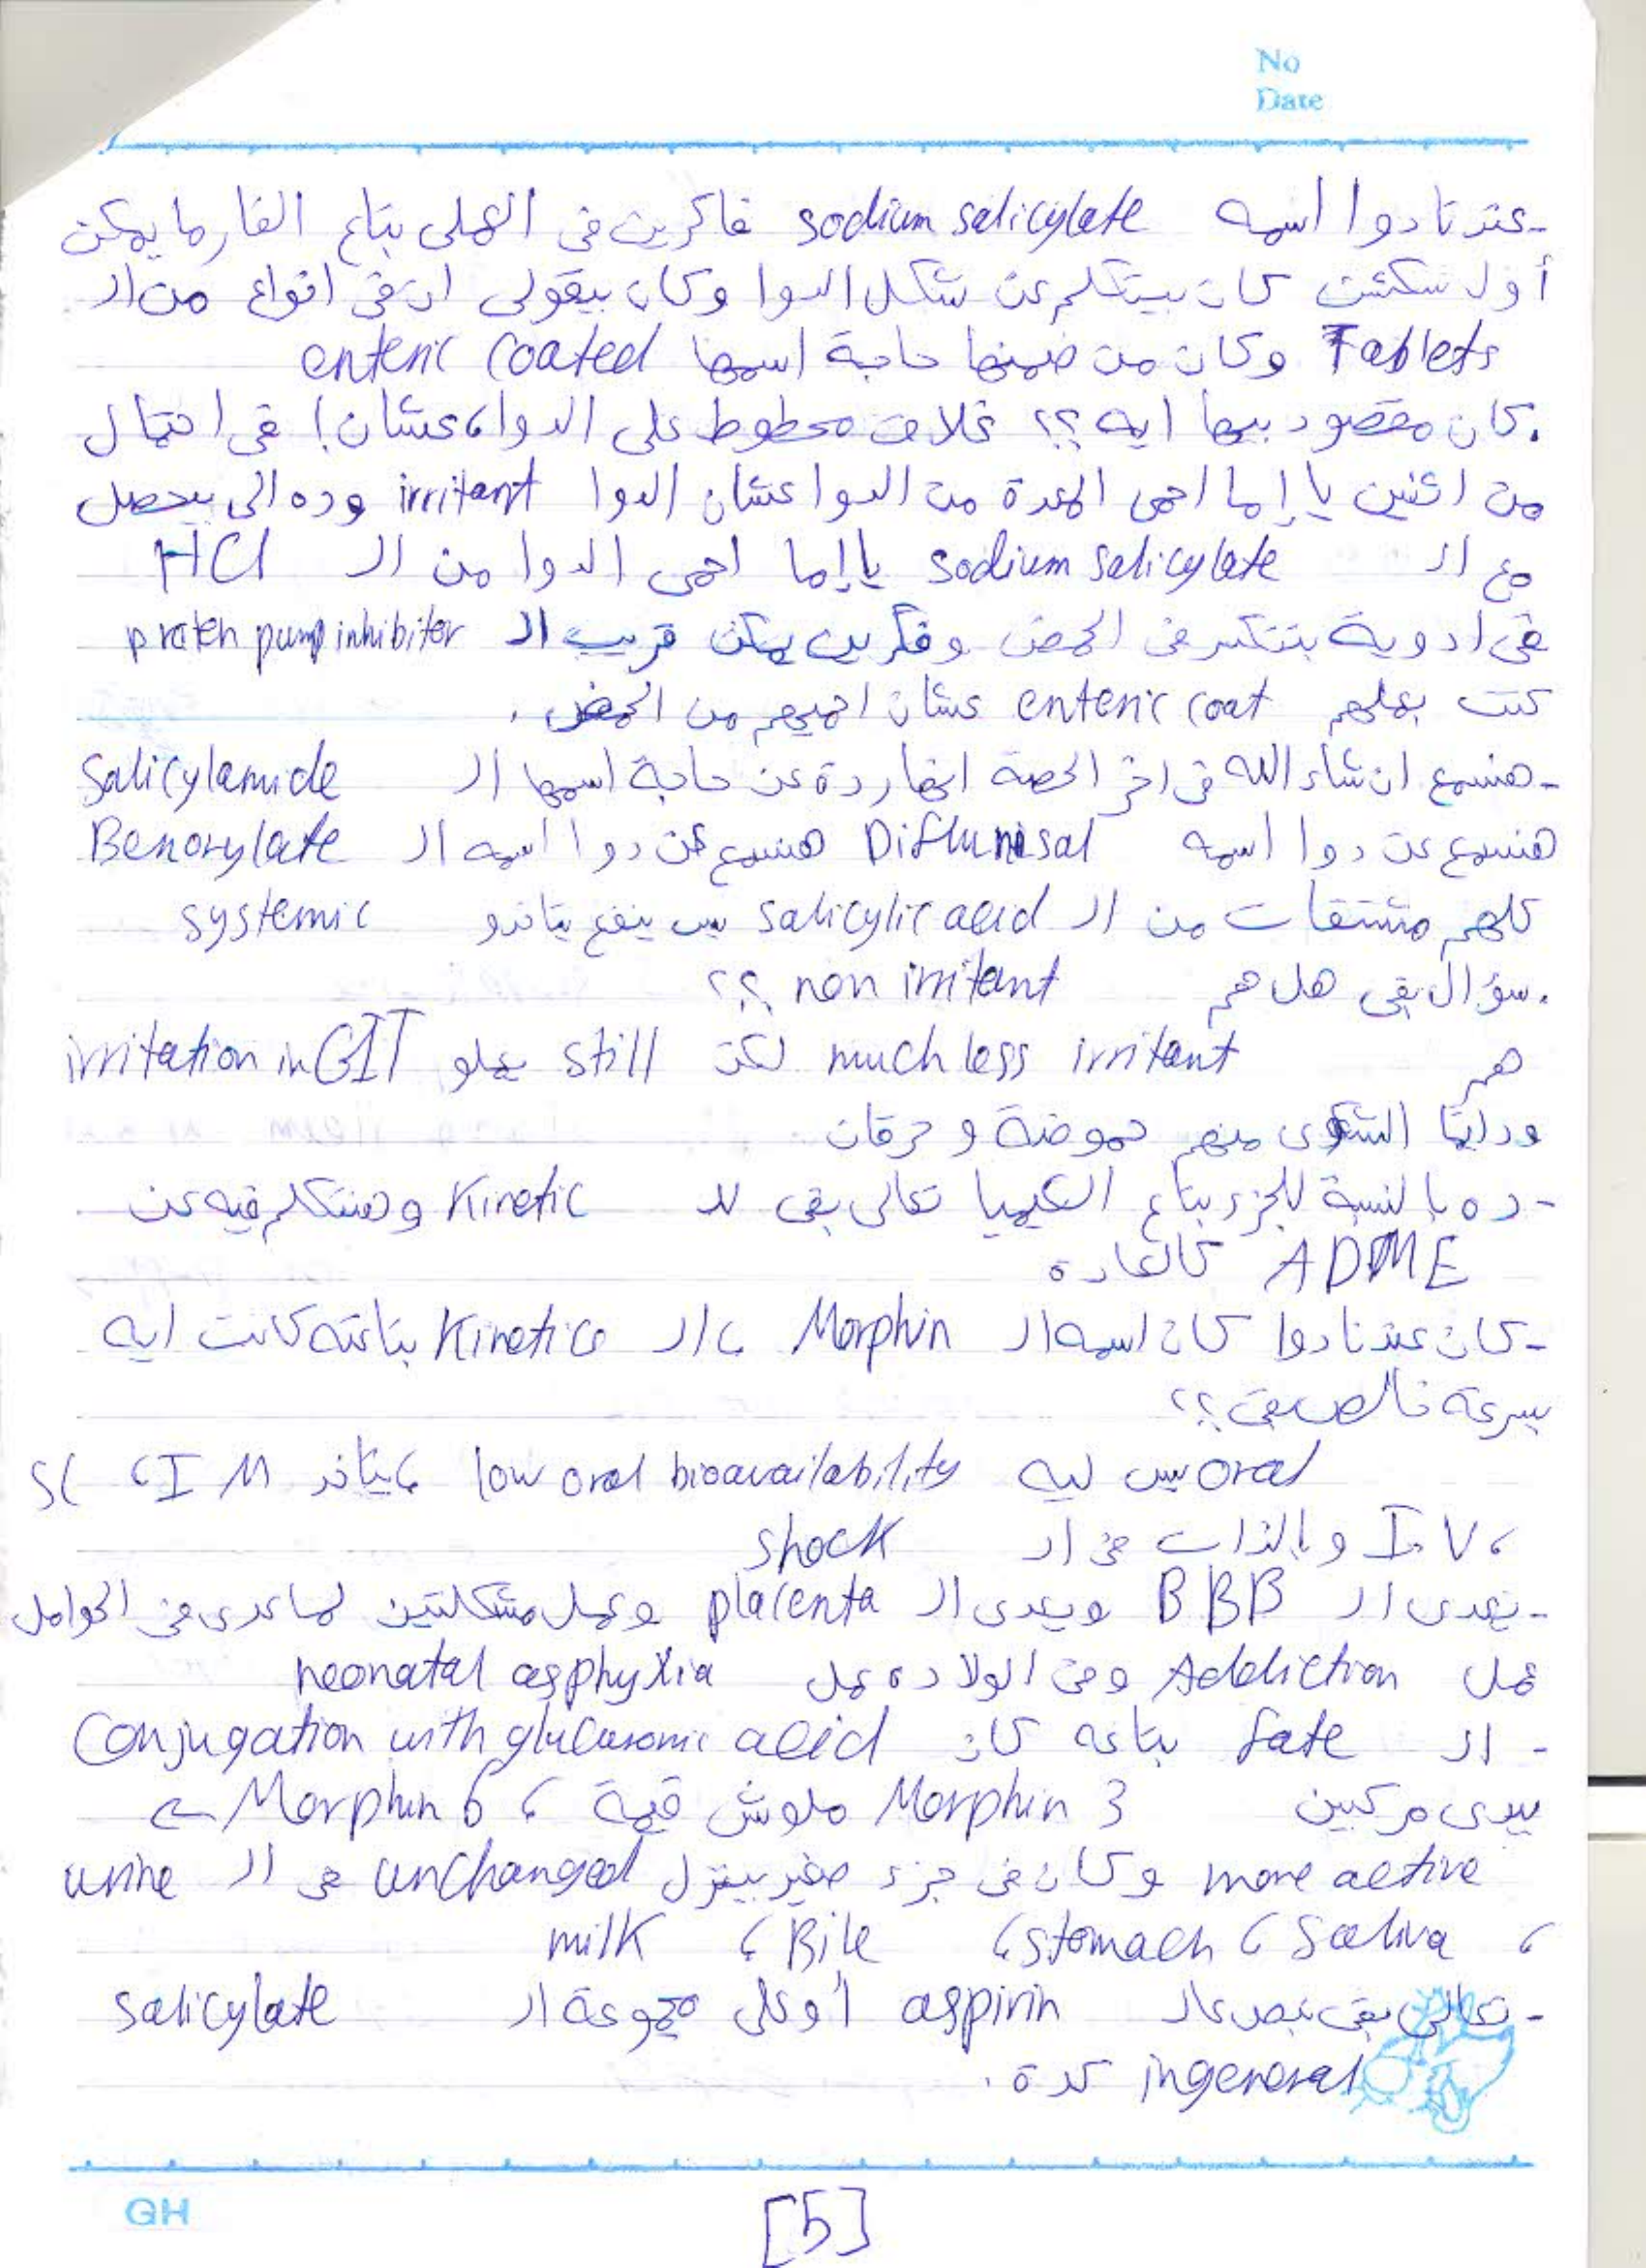 No
Date
-عندنا دوا اسمه sodium salicylate فاكرين في العملي بتاع الفارما يمكن
أول سكشن كان بيتكلم عن شكل الدوا وكان بيقولي ان في انواع من الـ
Tablets وكان من ضمنها حاجة اسمها enteric coated
.كان مقصود بيها ايه ؟؟ غلاف محطوط على الدوا، عشان! في احتمال
من اتنين يا إما احمى المعدة من الدوا عشان الدوا irritant وده الى بيحصل
مع الـ sodium salicylate يا إما احمى الدوا من الـ HCl
في ادوية بتتكسر في الحمض وفكرين يمكن قريب الـ proten pump inhibitor
كنت بعملهم enteric coat عشان احميهم من الحمض .
-هنسمع ان شاء الله في اخر الحصة انهاردة عن حاجة اسمها الـ Salicylamide
هنسمع عن دوا اسمه Diflunisal هنسمع عن دوا اسمه الـ Benorylate
كلهم مشتقات من الـ salicylic acid بس ينفع يتاخدو systemic
.سؤال بقى هل هم non irritant ؟؟
هم much less irritant لكن still بيعملو irritation in GIT
ودايما الشكوى منهم حموضة و حرقان
-ده بالنسبة للجزء بتاع الكيميا تعالى بقى للـ Kinetic وهنتكلم فيه عن
ADME كالعادة
-كان عندنا دوا كان اسمه الـ Morphin ، الـ Kinetics بتاعته كانت ايه
بسرعة خالص بقى ؟؟
oral بس ليه low oral bioavailability ، يتاخد SC ، I M
، I.V وبالذات في الـ shock
-يعدى الـ BBB ويعدى الـ placenta وعمل مشكلتين لما عدى في الحوامل
عمل Addiction وفى الولاده عمل neonatal asphyxia
- الـ fate بتاعه كان Conjugation with glucuronic acid
بيدى مركبين Morphin 3 ملوش قيمة ، Morphin 6 ←
more active وكان في جزء صغير بينزل unchanged في الـ urine
، Saliva ، stomach ، Bile ، milk
-تعالى بقى نبص عالـ aspirin أو على مجموعة الـ salicylate
ingeneral كدة .
GH
[5]